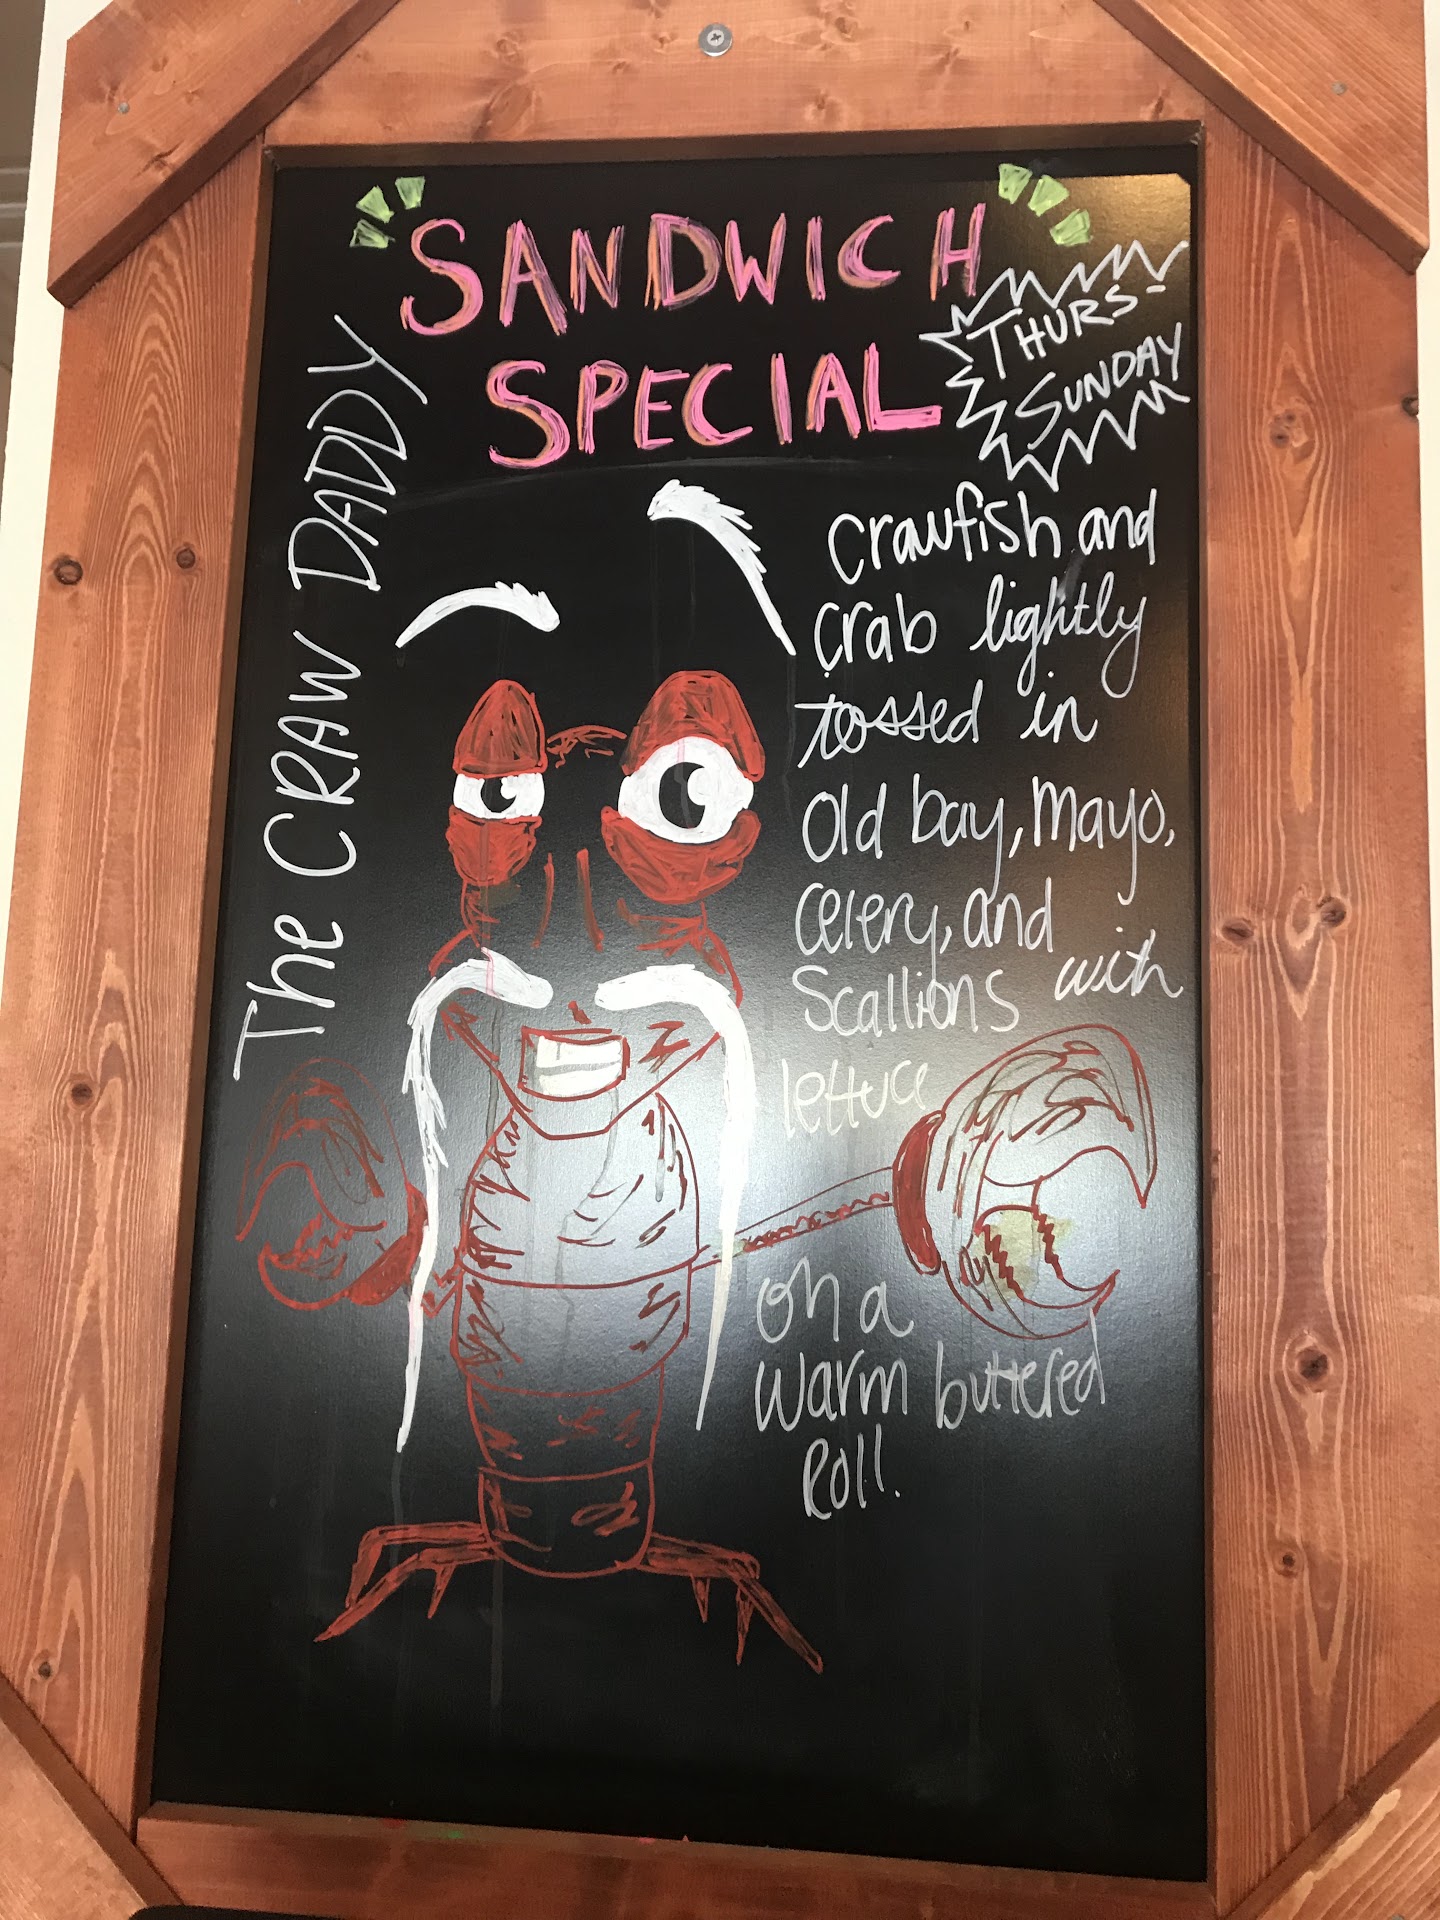 SANDWICH
SPECIAL
THURS-
SUNDAY
The CRAW DADDY
Crawfish and
crab lightly
tossed in
Old bay, Mayo,
celery, and
Scallions with
lettuce
on a
warm buttered
Roll.